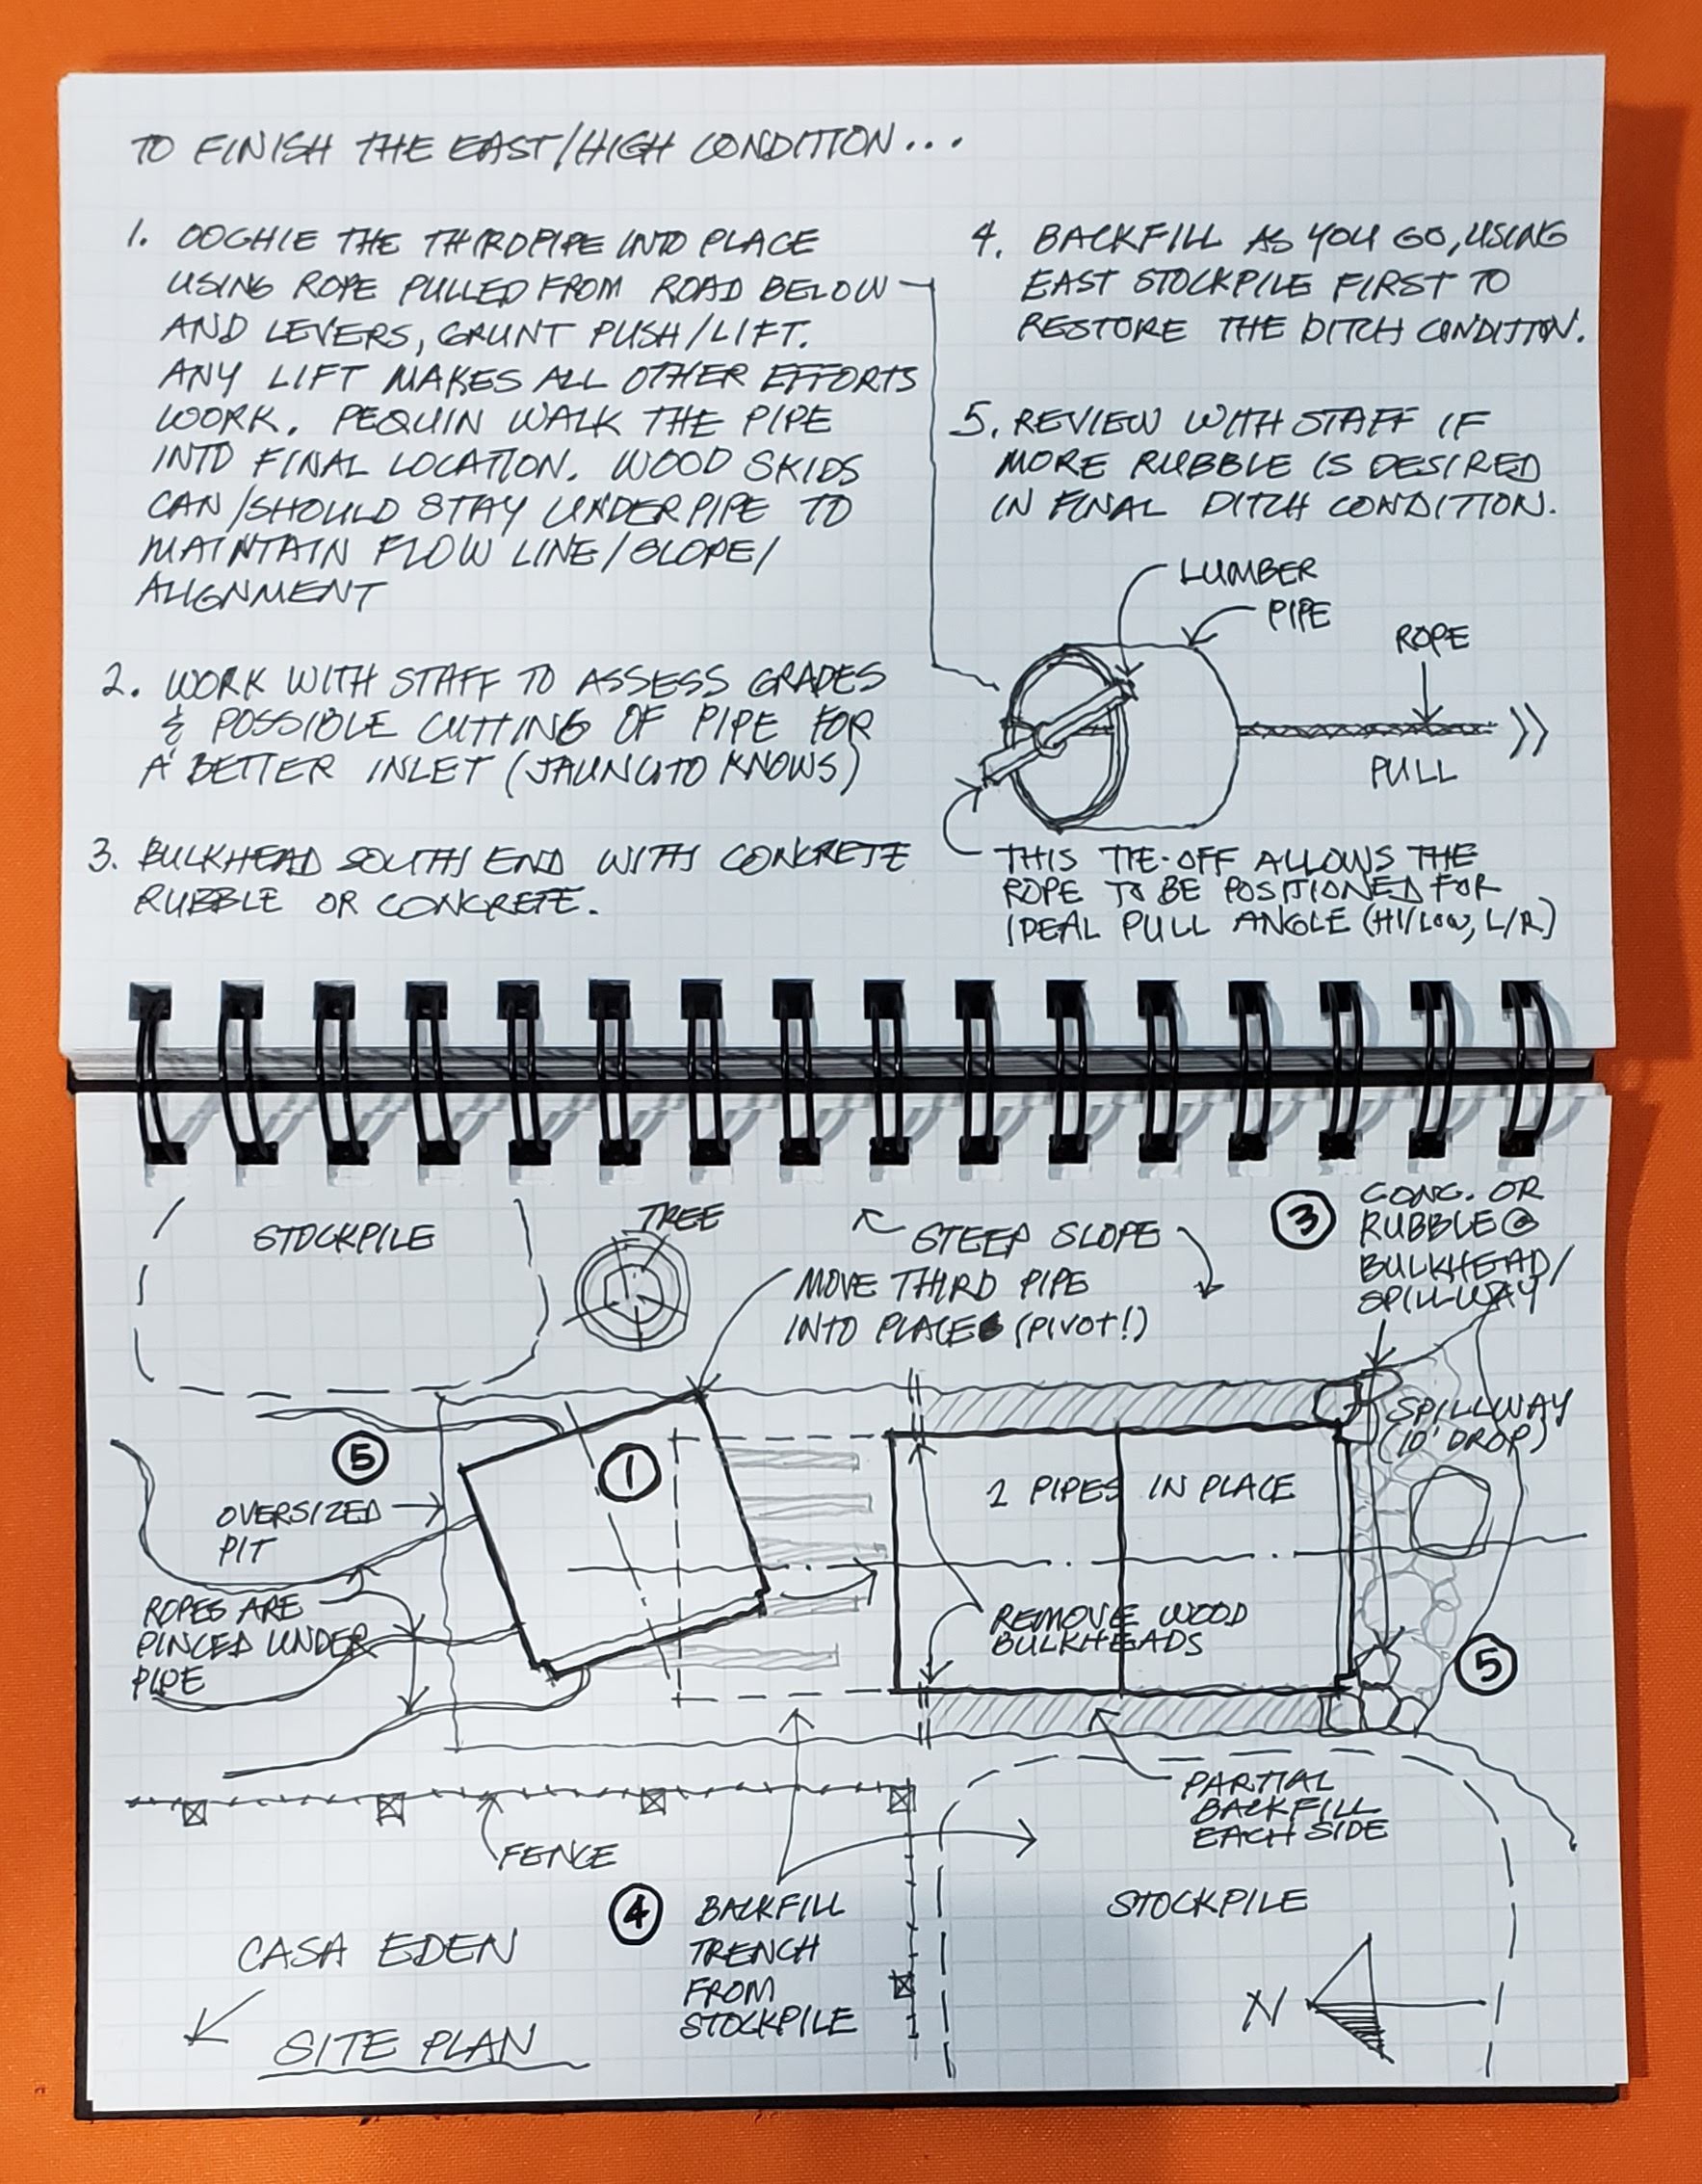 TO FINISH THE EAST/HIGH CONDITION...
1. OOCHIE THE THIRD PIPE INTO PLACE
USING ROPE PULLED FROM ROAD BELOW
AND LEVERS, GRUNT PUSH/LIFT.
ANY LIFT MAKES ALL OTHER EFFORTS
WORK. PEQUIN WALK THE PIPE
INTO FINAL LOCATION. WOOD SKIDS
CAN/SHOULD STAY UNDER PIPE TO
MAINTAIN FLOW LINE/SLOPE/
ALIGNMENT
2. WORK WITH STAFF TO ASSESS GRADES
& POSSIBLE CUTTING OF PIPE FOR
A BETTER INLET (KNOWS)
3. BULKHEAD SOUTH END WITH CONCRETE
RUBBLE OR CONCRETE.
4. BACKFILL AS YOU GO, USING
EAST STOCKPILE FIRST TO
RESTORE THE DITCH CONDITION.
5. REVIEW WITH STAFF IF
MORE RUBBLE IS DESIRED
IN FINAL DITCH CONDITION.
LUMBER
PIPE
ROPE
PULL
THIS TIE-OFF ALLOWS THE
ROPE TO BE POSITIONED FOR
IDEAL PULL ANGLE (HI/LOW, L/R)
STOCKPILE
TREE
STEEP SLOPE
MOVE THIRD PIPE
INTO PLACE (PIVOT!)
3
CONC. OR
RUBBLE @
BULKHEAD/
SPILLWAY
SPILLWAY
(10' DROP)
5
OVERSIZED
PIT
1
2 PIPES IN PLACE
ROPES ARE
PINCED UNDER
PIPE
REMOVE WOOD
BULKHEADS
5
PARTIAL
BACKFILL
EACH SIDE
FENCE
4
BACKFILL
TRENCH
FROM
STOCKPILE
STOCKPILE
CASA EDEN
SITE PLAN
N